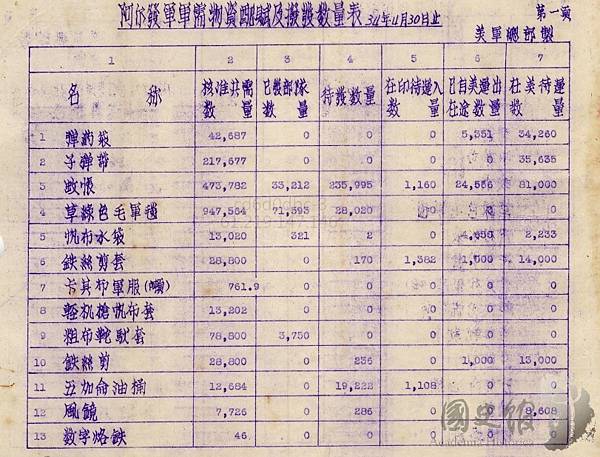 阿尔發軍軍需物資配賦及撥發數量表 34年4月30日止 第一頁
美軍總部製
1 2 3 4 5 6 7
名稱 核准共需數量 已發部隊數量 待發數量 在印待運入數量 已自美運出在途數量 在美待運數量
1 彈葯袋 42,687 0 0 0 5,351 34,260
2 子彈帶 217,677 0 0 0 0 35,635
3 蚊帳 473,782 33,212 235,995 1,160 24,566 81,000
4 草綠色毛軍毯 947,564 71,593 28,020 0 0 0
5 帆布水袋 13,020 321 2 0 4,656 2,233
6 鉄絲剪套 28,800 0 170 1,382 1,500 14,000
7 卡其布軍服(噸) 761.9 0 0 0 0 0
8 輕机槍帆布套 13,202 0 0 0 0 0
9 粗布靴馱套 78,800 3,750 0 0 0 0
10 鉄絲剪 28,800 0 236 0 1,000 13,000
11 五加侖油桶 12,684 0 19,222 1,108 0 0
12 風鏡 7,726 0 286 0 0 8,608
13 数字烙鉄 46 0 0 0 0 0
國史館